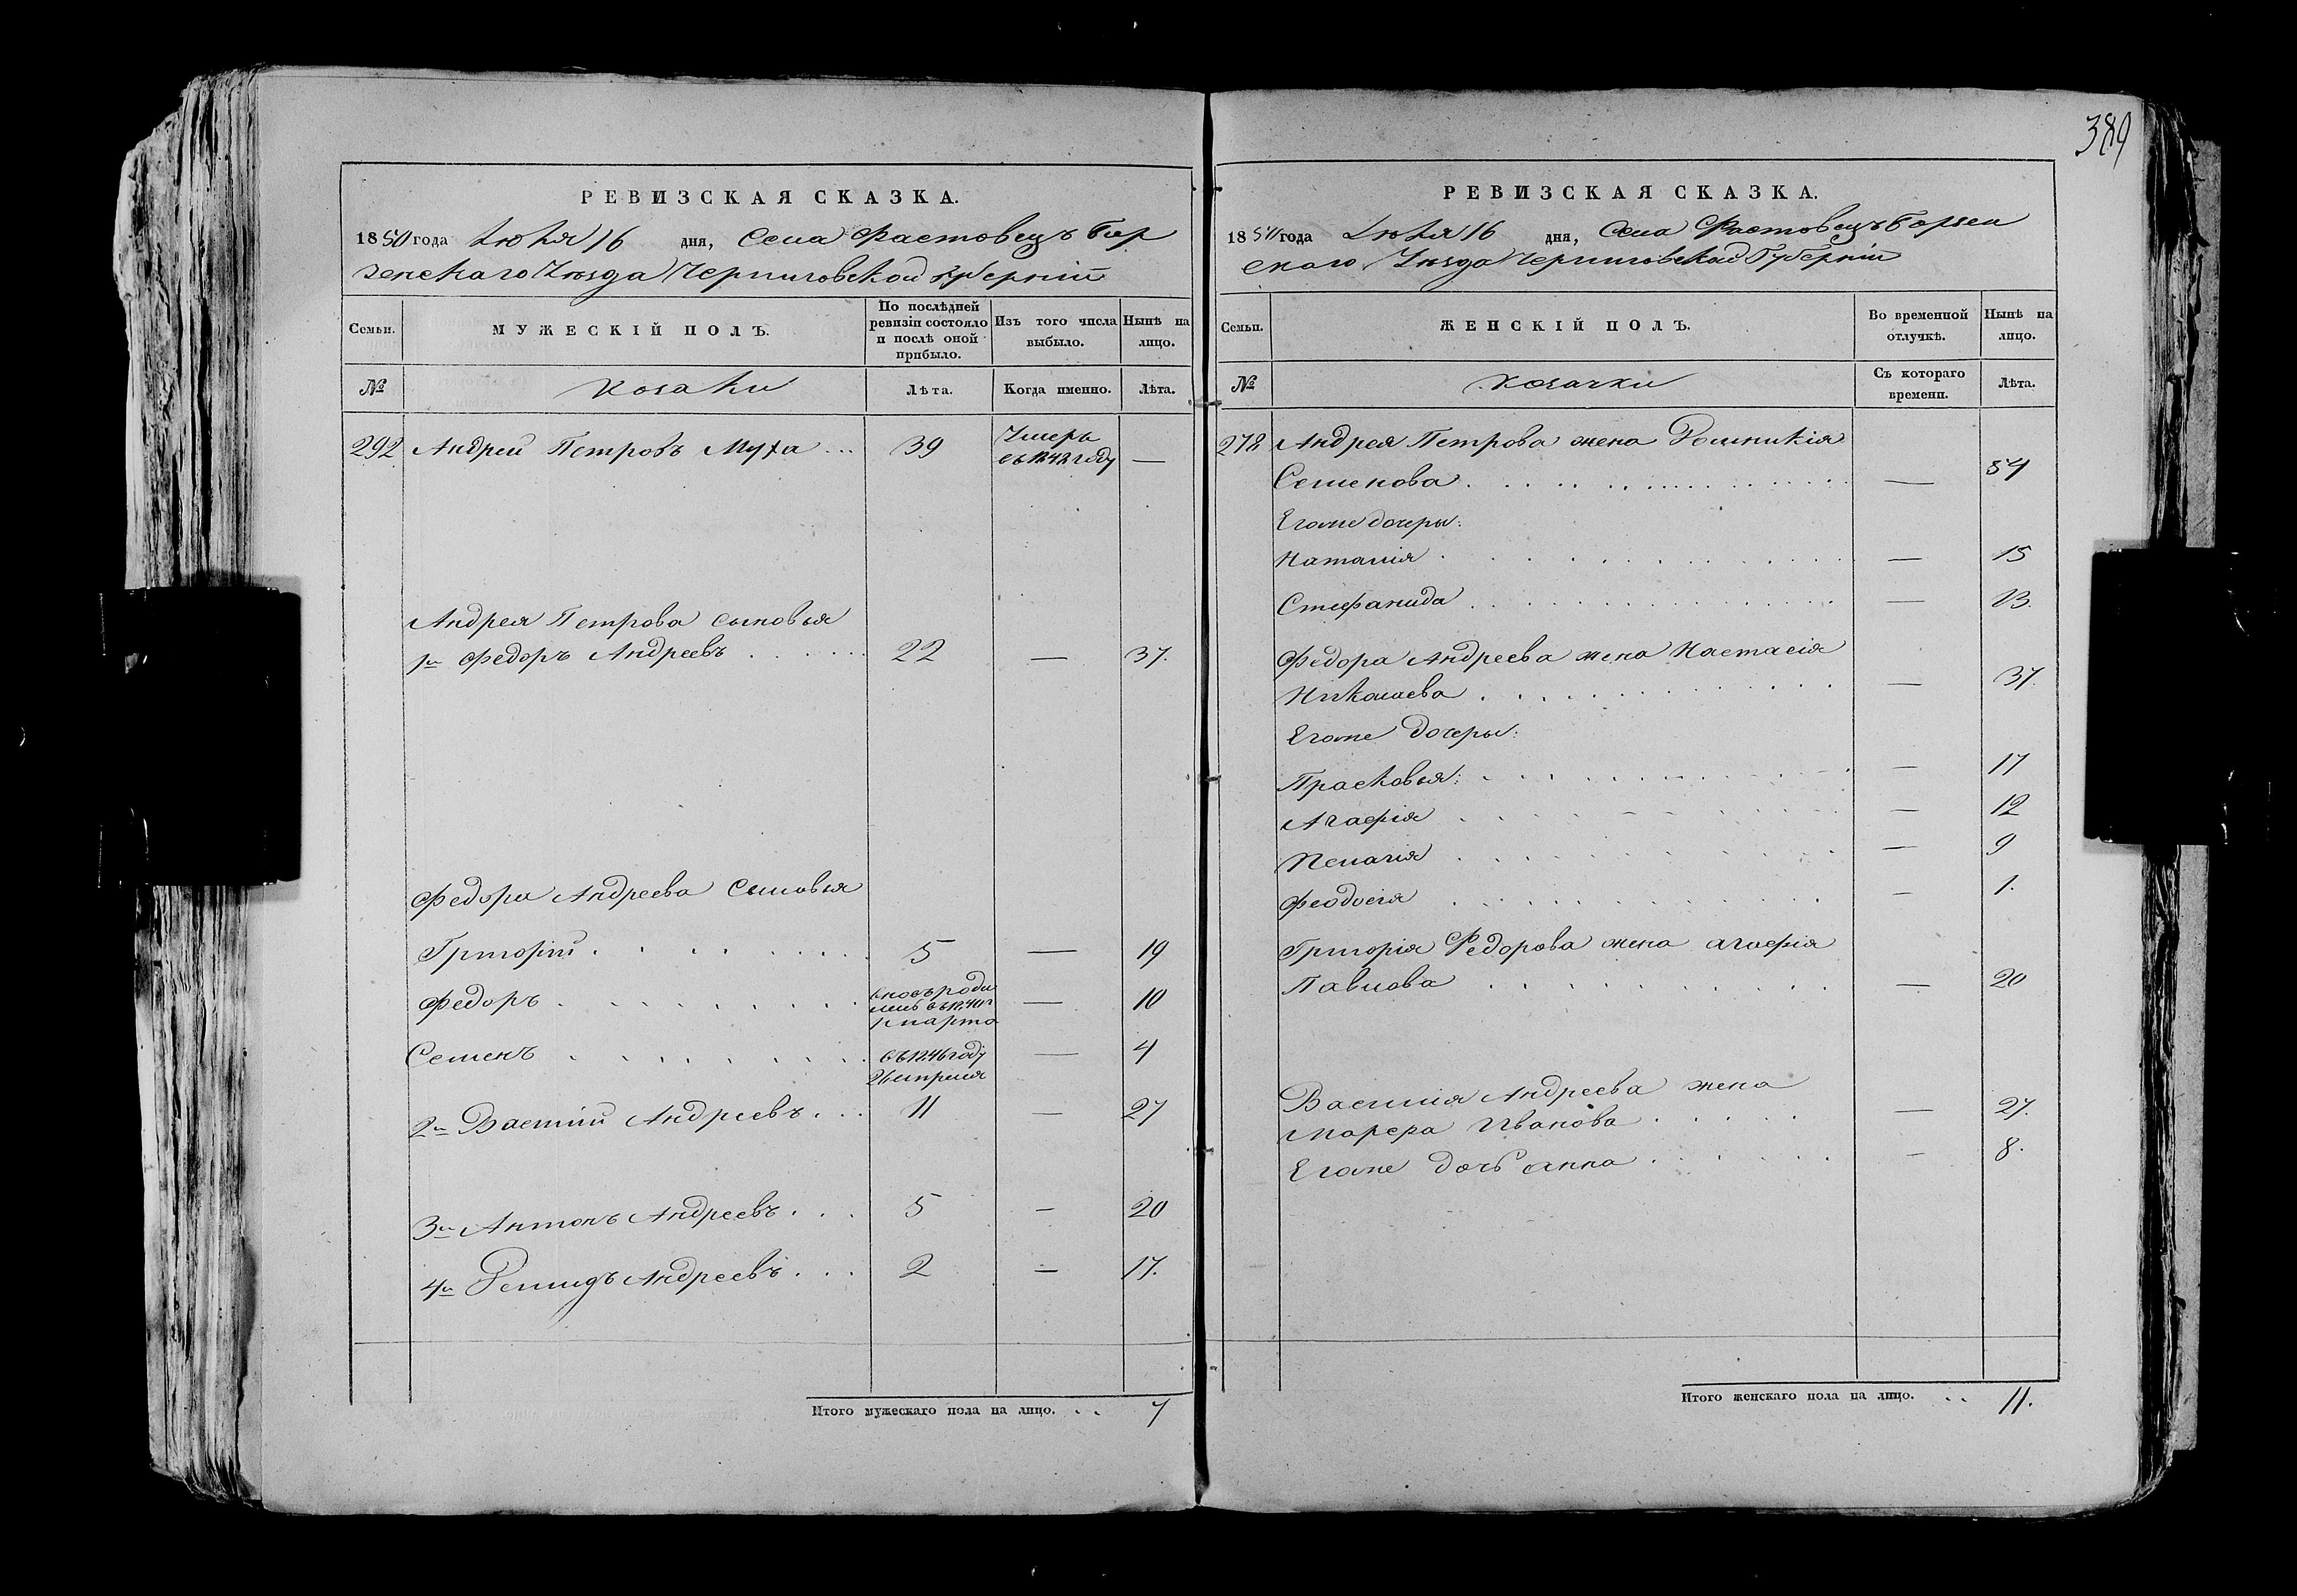 389
РЕВИЗСКАЯ СКАЗКА.
1850 года Іюля 16 дня, Села Фастовецъ Бор
зенскаго Уѣзда Черниговской Губерніи
Семьи.
МУЖЕСКІЙ ПОЛЪ.
По послѣдней ревизіи состояло и послѣ оной прибыло.
Изъ того числа выбыло.
Нынѣ на лицо.
№
Козаки
Лѣта.
Когда именно.
Лѣта.
292 Андрей Петровъ Муха ... 39 Умеръ въ 1842 году —
Андрея Петрова сыновья
1й Федоръ Андреевъ 22 — 37.
Федора Андреева Сыновья
Григорій 5 — 19
Федоръ родил 10
марта
Семенъ въ 1846 году 26 апреля — 4
2й Василій Андреевъ 11 — 27
3й Антонъ Андреевъ 5 — 20
4й Андреевъ 2 — 17.
Итого мужескаго пола на лицо. . . 7
РЕВИЗСКАЯ СКАЗКА.
1850 года Іюля 16 дня, Села Фастовецъ Борзен
скаго Уѣзда Черниговской Губерніи
Семьи.
ЖЕНСКІЙ ПОЛЪ.
Во временной отлучкѣ.
Нынѣ на лицо.
№
Козачки
Съ котораго времени.
Лѣта.
278 Андрея Петрова жена Домникія
Семенова — 54
Егоже дочеры:
Наталія — 15
Стефанида — 13.
Федора Андреева жена Настасія
Николаева — 37.
Егоже дочеры:
Прасковья: — 17
Агафія — 12
Пелагія — 9
Феодосія — 1.
Григорія Федорова жена Агафія
Павлова — 20
Василія Андреева жена
Марфа Иванова — 27.
Егоже дочь Анна — 8.
Итого женскаго пола на лицо. . . 11.